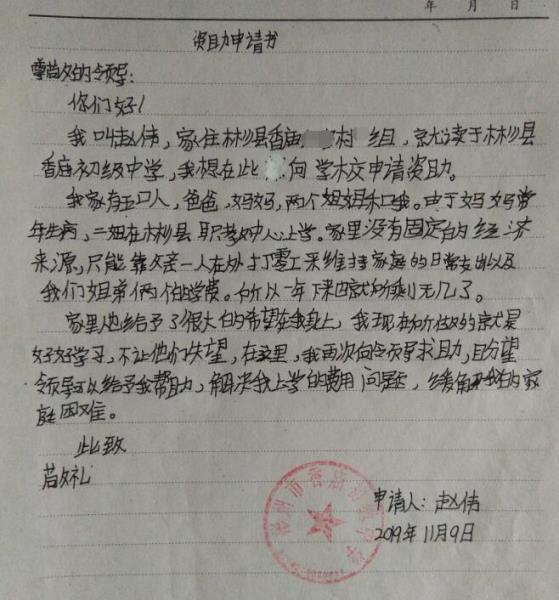 年 月 日
资助申请书
尊敬的领导:
你们好!
我叫赵伟,家住彬县香庙村 组,就读于彬县
香庙初级中学,我想在此向学校申请资助。
我家有五口人,爸爸,妈妈,两个姐姐和我。由于妈妈常
年生病,二姐在彬县职教中心上学。家里没有固定的经济
来源,只能靠父亲一人在外打零工来维持家庭的日常支出以及
我们姐弟俩的学费。所以一年下来也就所剩无几了。
家里也给予了很大的希望在我身上,我现在所做的就是
好好学习,不让他们失望,在这里,我再次向领导求助,盼望
领导可以给予我帮助,解决我上学的费用问题,缓解我的家
庭困难。
此致
敬礼
申请人:赵伟
2019年11月9日